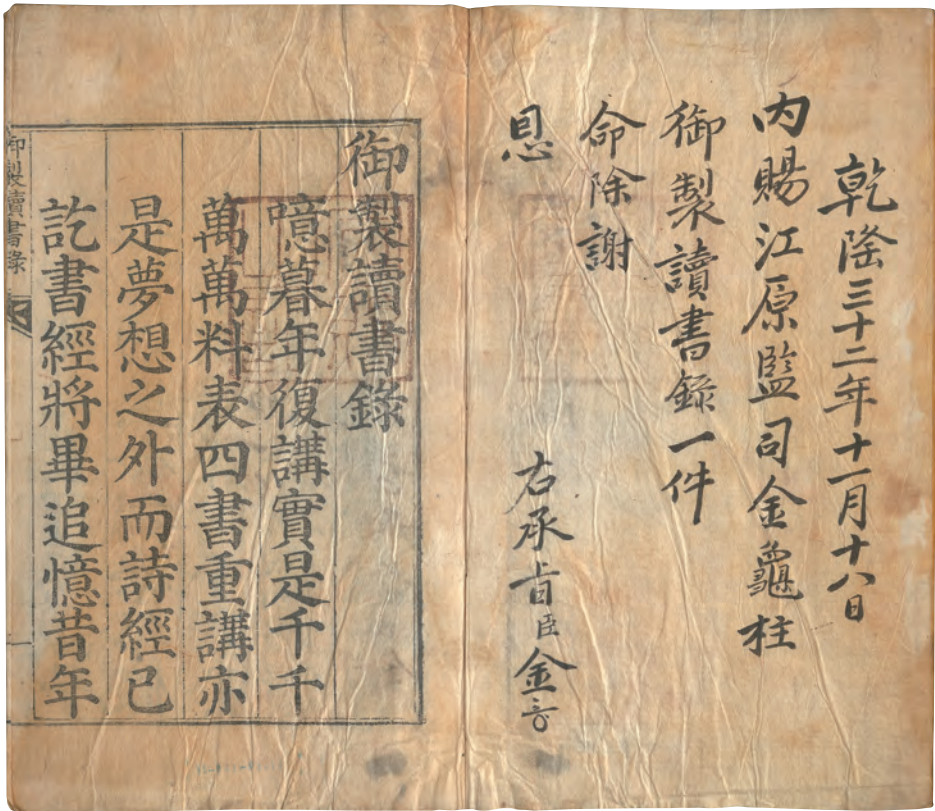 乾隆三十二年十一月十八日
內賜江原監司金龜柱
御製讀書錄一件
命除謝
恩
右承旨臣金
御製讀書錄
噫暮年復講實是千千
萬萬料表四書重講亦
是夢想之外而詩經已
訖書經將畢追憶昔年
御製讀書錄